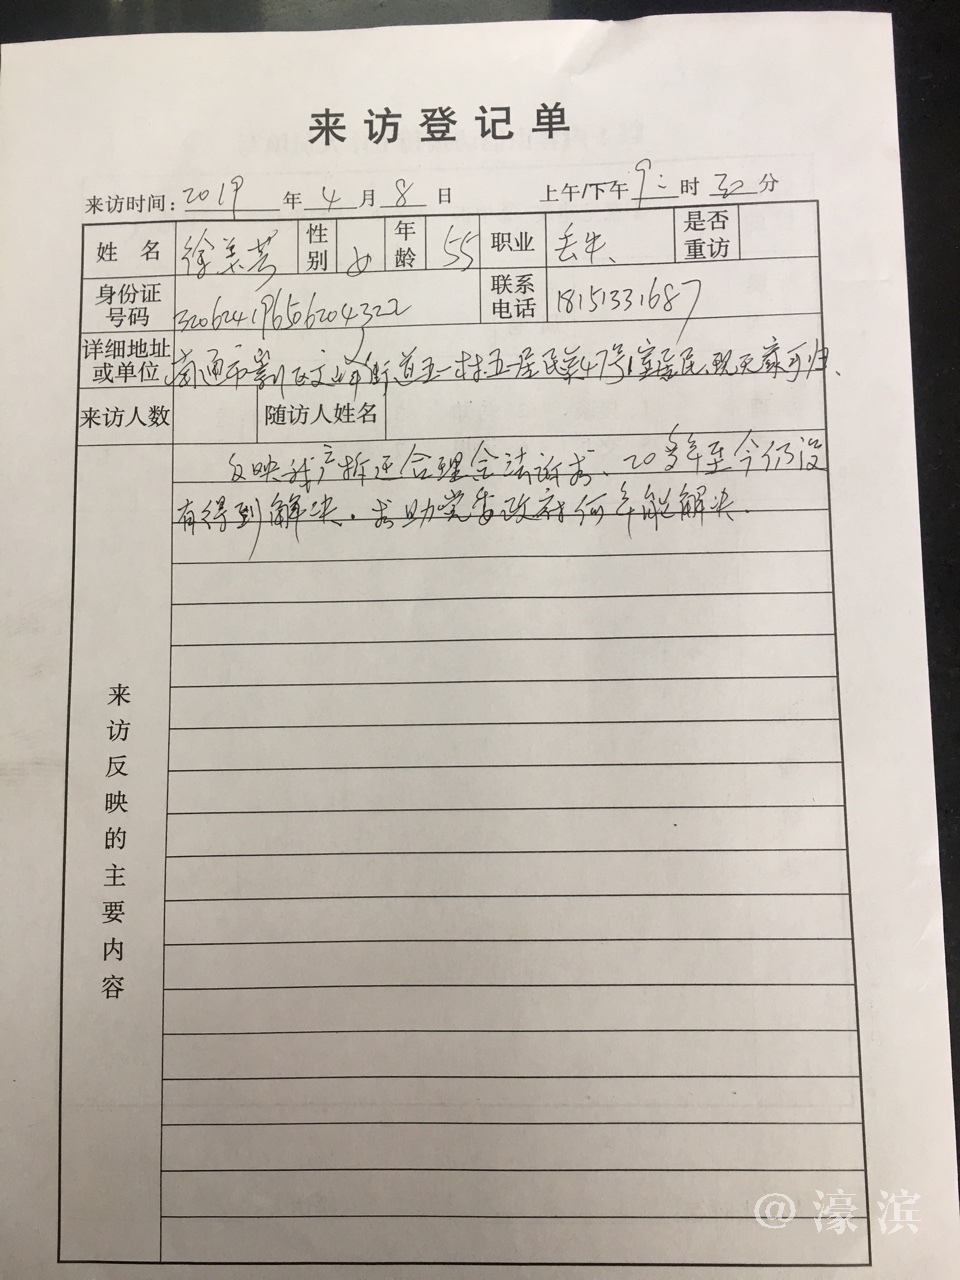 来访登记单
来访时间:2019年4月8日 上午/下午9:时30分
姓名 徐美芳 性别 女 年龄 55 职业 丢失、 是否重访
身份证号码 320624196506204322 联系电话 18151331687
详细地址或单位 南通市崇川区文峰街道五一村五居民第47号1室居民、现无家可归、
来访人数 随访人姓名
来访反映的主要内容
反映我户拆迁合理合法诉求、20多年至今仍没
有得到解决.求助党委政府何年能解决.
@濠滨